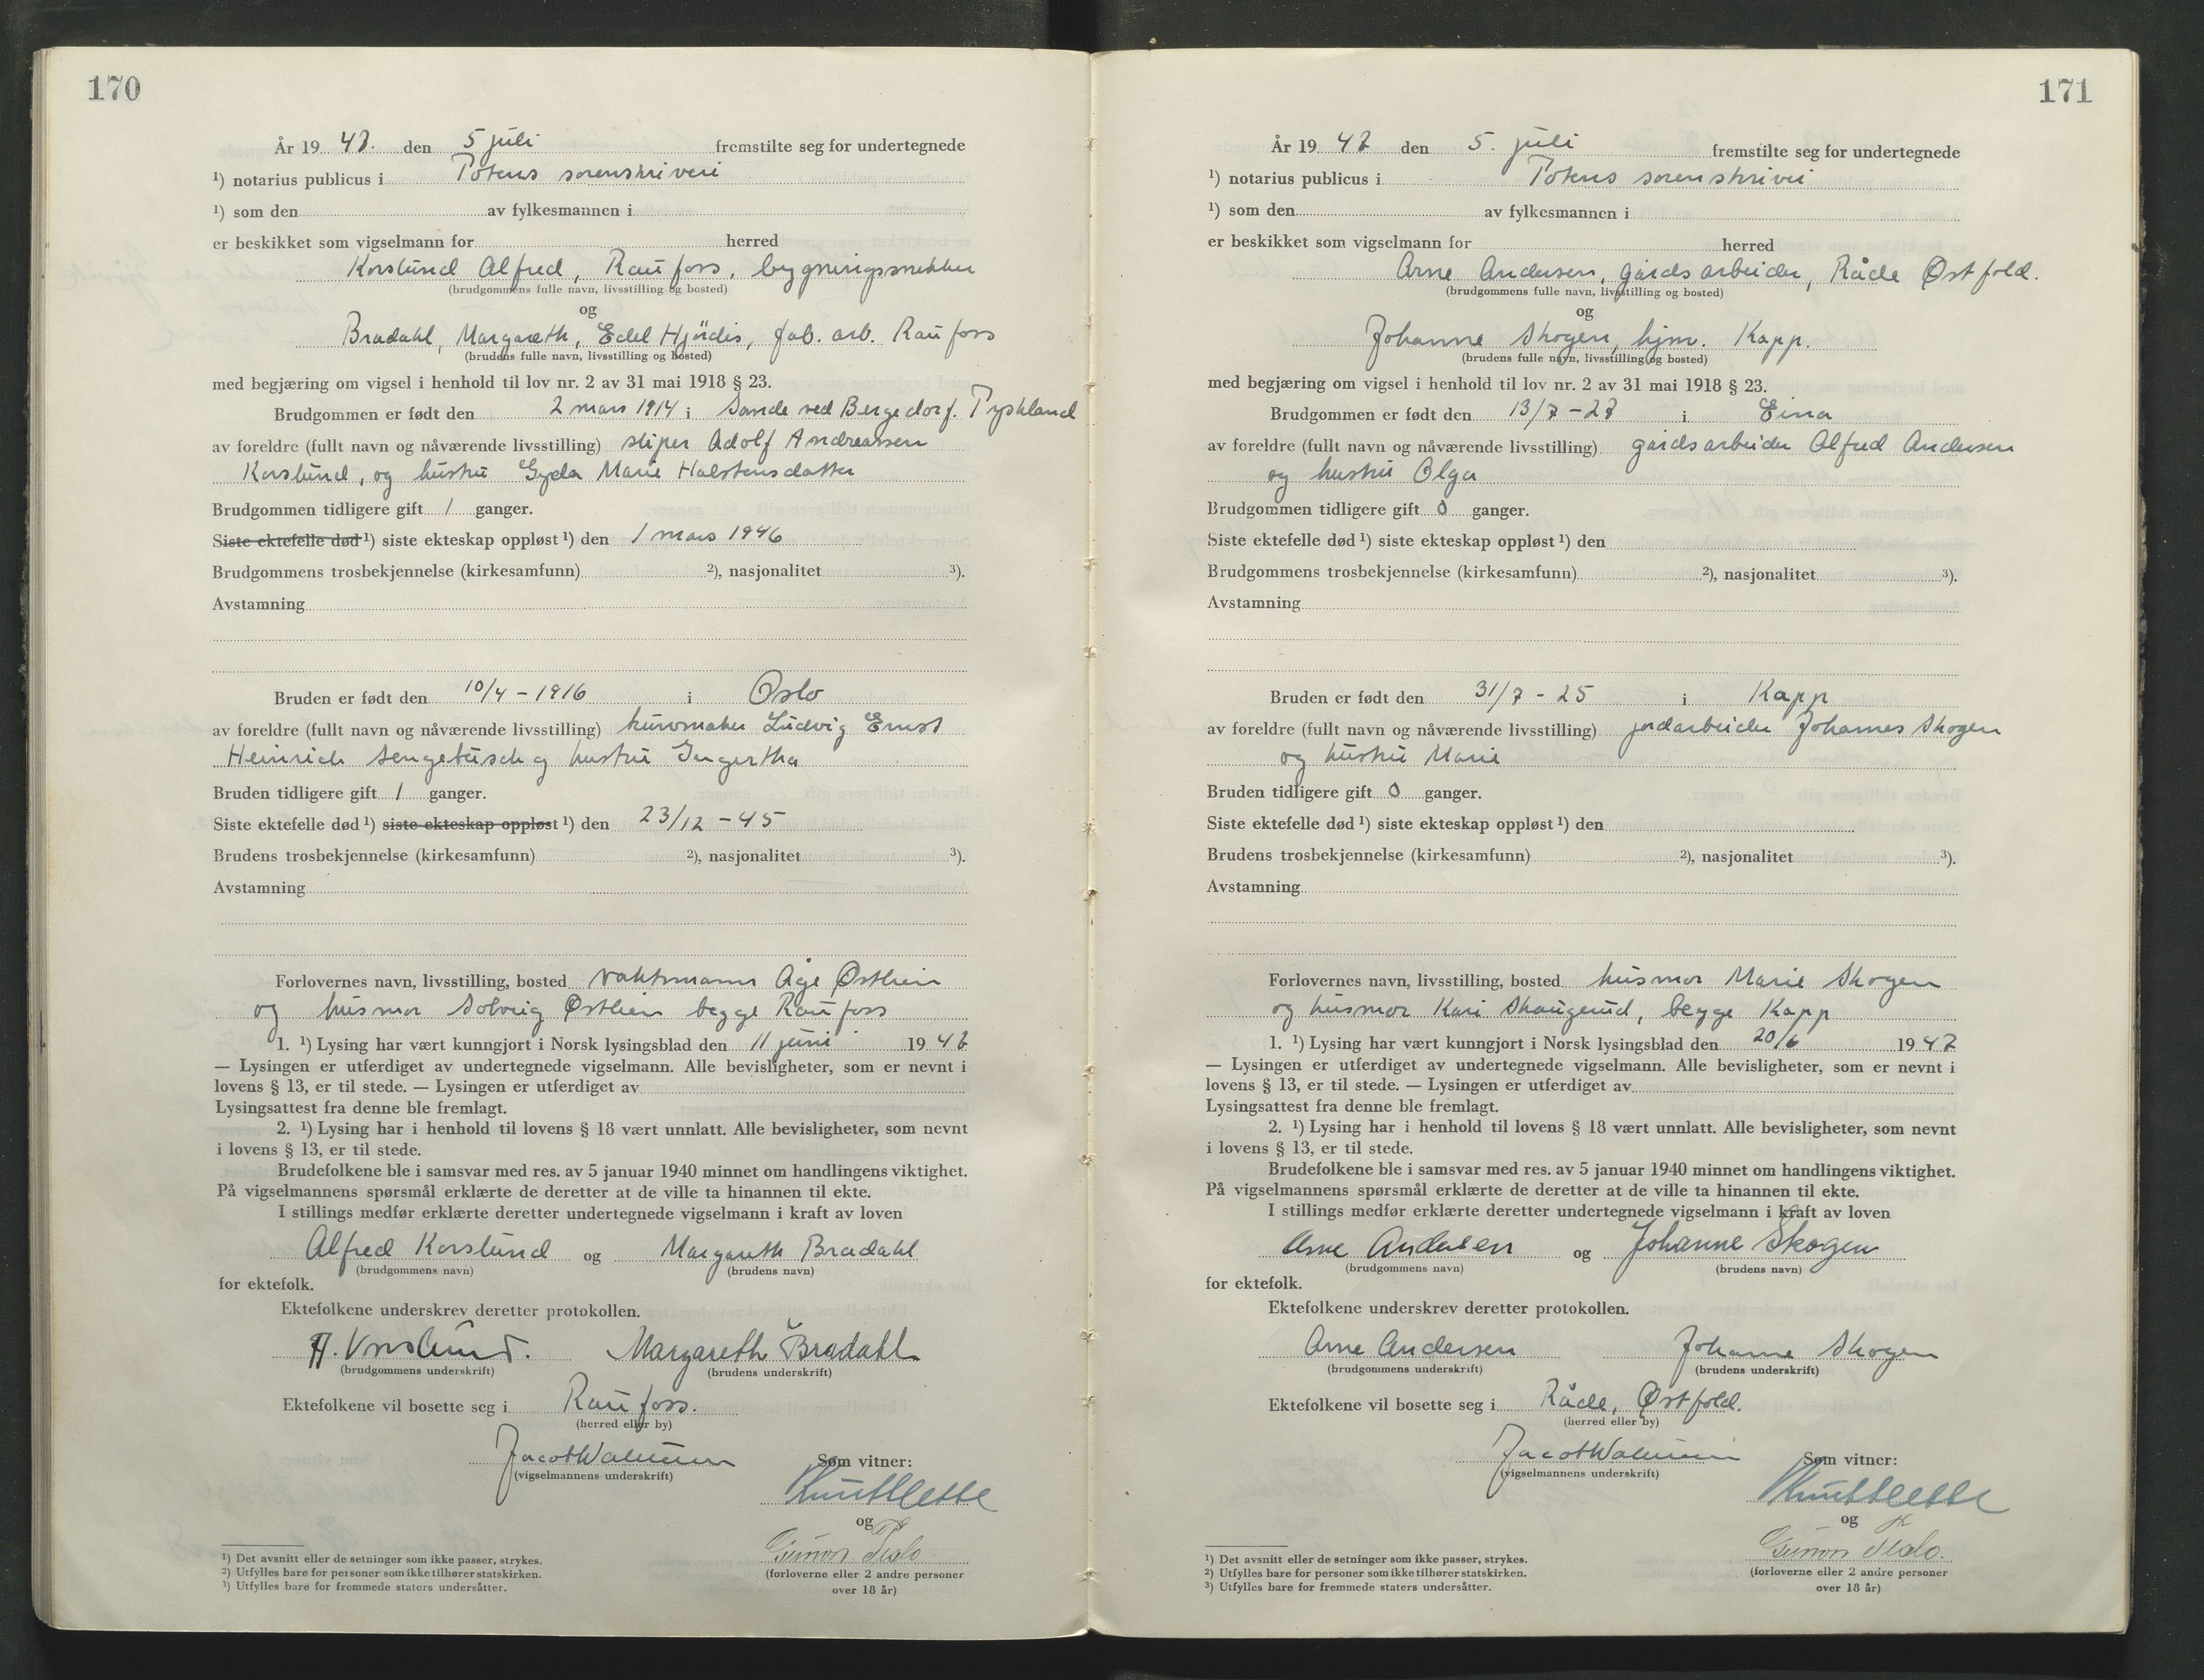 170
År 19 47. den 5 juli fremstilte seg for undertegnede
¹) notarius publicus i Totens sorenskriveri
¹) som den av fylkesmannen i
er beskikket som vigselmann for herred
Korslund Alfred, Raufoss, bygningssnekker
(brudgommens fulle navn, livsstilling og bosted)
og
Bradahl, Margareth, Edel Hjördis, fab. arb. Raufoss
(brudens fulle navn, livsstilling og bosted)
med begjæring om vigsel i henhold til lov nr. 2 av 31 mai 1918 § 23.
Brudgommen er født den 2 mars 1914 i Sande ved Bergedorf. Tyskland
av foreldre (fullt navn og nåværende livsstilling) sliper Adolf Andreassen
Korslund, og hustru Gyda Marie Halstensdatter
Brudgommen tidligere gift 1 ganger.
Siste ektefelle død ¹) siste ekteskap oppløst ¹) den 1 mars 1946
Brudgommens trosbekjennelse (kirkesamfunn) ²), nasjonalitet ³).
Avstamning
Bruden er født den 10/4 - 1916 i Oslo
av foreldre (fullt navn og nåværende livsstilling) kurvmaker Ludvig Ernst
Heinrich Sengebusch og hustru Ingertha
Bruden tidligere gift 1 ganger.
Siste ektefelle død ¹) siste ekteskap oppløst ¹) den 23/12 - 45
Brudens trosbekjennelse (kirkesamfunn) ²), nasjonalitet ³).
Avstamning
Forlovernes navn, livsstilling, bosted vaktmann Åge Østlien
og husmor Solveig Østlien begge Raufoss
1. ¹) Lysing har vært kunngjort i Norsk lysingsblad den 11 juni 19
— Lysingen er utferdiget av undertegnede vigselmann. Alle bevisligheter, som er nevnt i
lovens § 13, er til stede. — Lysingen er utferdiget av
Lysingsattest fra denne ble fremlagt.
2. ¹) Lysing har i henhold til lovens § 18 vært unnlatt. Alle bevisligheter, som nevnt
i lovens § 13, er til stede.
Brudefolkene ble i samsvar med res. av 5 januar 1940 minnet om handlingens viktighet.
På vigselmannens spørsmål erklærte de deretter at de ville ta hinannen til ekte.
I stillings medfør erklærte deretter undertegnede vigselmann i kraft av loven
Alfred Korslund og Margareth Bradahl
(brudgommens navn) (brudens navn)
for ektefolk.
Ektefolkene underskrev deretter protokollen.
A. Korslund. Margareth Bradahl
(brudgommens underskrift) (brudens underskrift)
Ektefolkene vil bosette seg i Raufoss.
(herred eller by)
(vigselmannens underskrift) Som vitner:
og
Gunvor
(forloverne eller 2 andre personer
over 18 år)
¹) Det avsnitt eller de setninger som ikke passer, strykes.
²) Utfylles bare for personer som ikke tilhører statskirken.
³) Utfylles bare for fremmede staters undersåtter.
171
År 19 47 den 5. juli fremstilte seg for undertegnede
¹) notarius publicus i Totens sorenskriveri
¹) som den av fylkesmannen i
er beskikket som vigselmann for herred
Arne Andersen, gårdsarbeider, Råde Østfold.
(brudgommens fulle navn, livsstilling og bosted)
og
Johanne Skogen, hjm. Kapp.
(brudens fulle navn, livsstilling og bosted)
med begjæring om vigsel i henhold til lov nr. 2 av 31 mai 1918 § 23.
Brudgommen er født den 13/7 - 27 i Eina
av foreldre (fullt navn og nåværende livsstilling) gårdsarbeider Alfred Andersen
og hustru Olga
Brudgommen tidligere gift 0 ganger.
Siste ektefelle død ¹) siste ekteskap oppløst ¹) den
Brudgommens trosbekjennelse (kirkesamfunn) ²), nasjonalitet ³).
Avstamning
Bruden er født den 31/7 - 25 i Kapp
av foreldre (fullt navn og nåværende livsstilling) jordarbeider Johannes Skogen
og hustru Marie
Bruden tidligere gift 0 ganger.
Siste ektefelle død ¹) siste ekteskap oppløst ¹) den
Brudens trosbekjennelse (kirkesamfunn) ²), nasjonalitet ³).
Avstamning
Forlovernes navn, livsstilling, bosted husmor Marie Skogen
og husmor Kari Skaugerud, begge Kapp
1. ¹) Lysing har vært kunngjort i Norsk lysingsblad den 20/6 19 47
— Lysingen er utferdiget av undertegnede vigselmann. Alle bevisligheter, som er nevnt i
lovens § 13, er til stede. — Lysingen er utferdiget av
Lysingsattest fra denne ble fremlagt.
2. ¹) Lysing har i henhold til lovens § 18 vært unnlatt. Alle bevisligheter, som nevnt
i lovens § 13, er til stede.
Brudefolkene ble i samsvar med res. av 5 januar 1940 minnet om handlingens viktighet.
På vigselmannens spørsmål erklærte de deretter at de ville ta hinannen til ekte.
I stillings medfør erklærte deretter undertegnede vigselmann i kraft av loven
Arne Andersen og Johanne Skogen
(brudgommens navn) (brudens navn)
for ektefolk.
Ektefolkene underskrev deretter protokollen.
Arne Andersen Johanne Skogen
(brudgommens underskrift) (brudens underskrift)
Ektefolkene vil bosette seg i Råde, Østfold.
(herred eller by)
(vigselmannens underskrift) Som vitner:
og
Gunvor
(forloverne eller 2 andre personer
over 18 år)
¹) Det avsnitt eller de setninger som ikke passer, strykes.
²) Utfylles bare for personer som ikke tilhører statskirken.
³) Utfylles bare for fremmede staters undersåtter.